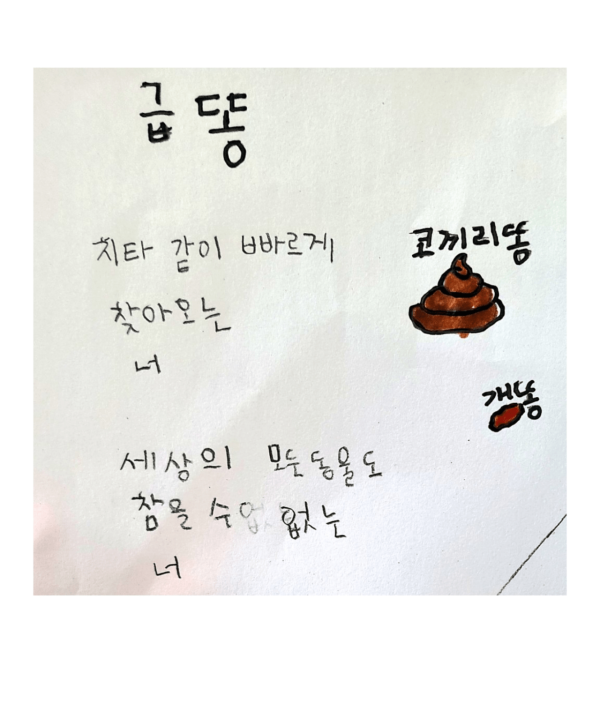 급똥
치타 같이 빠르게
찾아오는
너
세상의 모든 동물도
참을 수 없는
너
코끼리똥
개똥